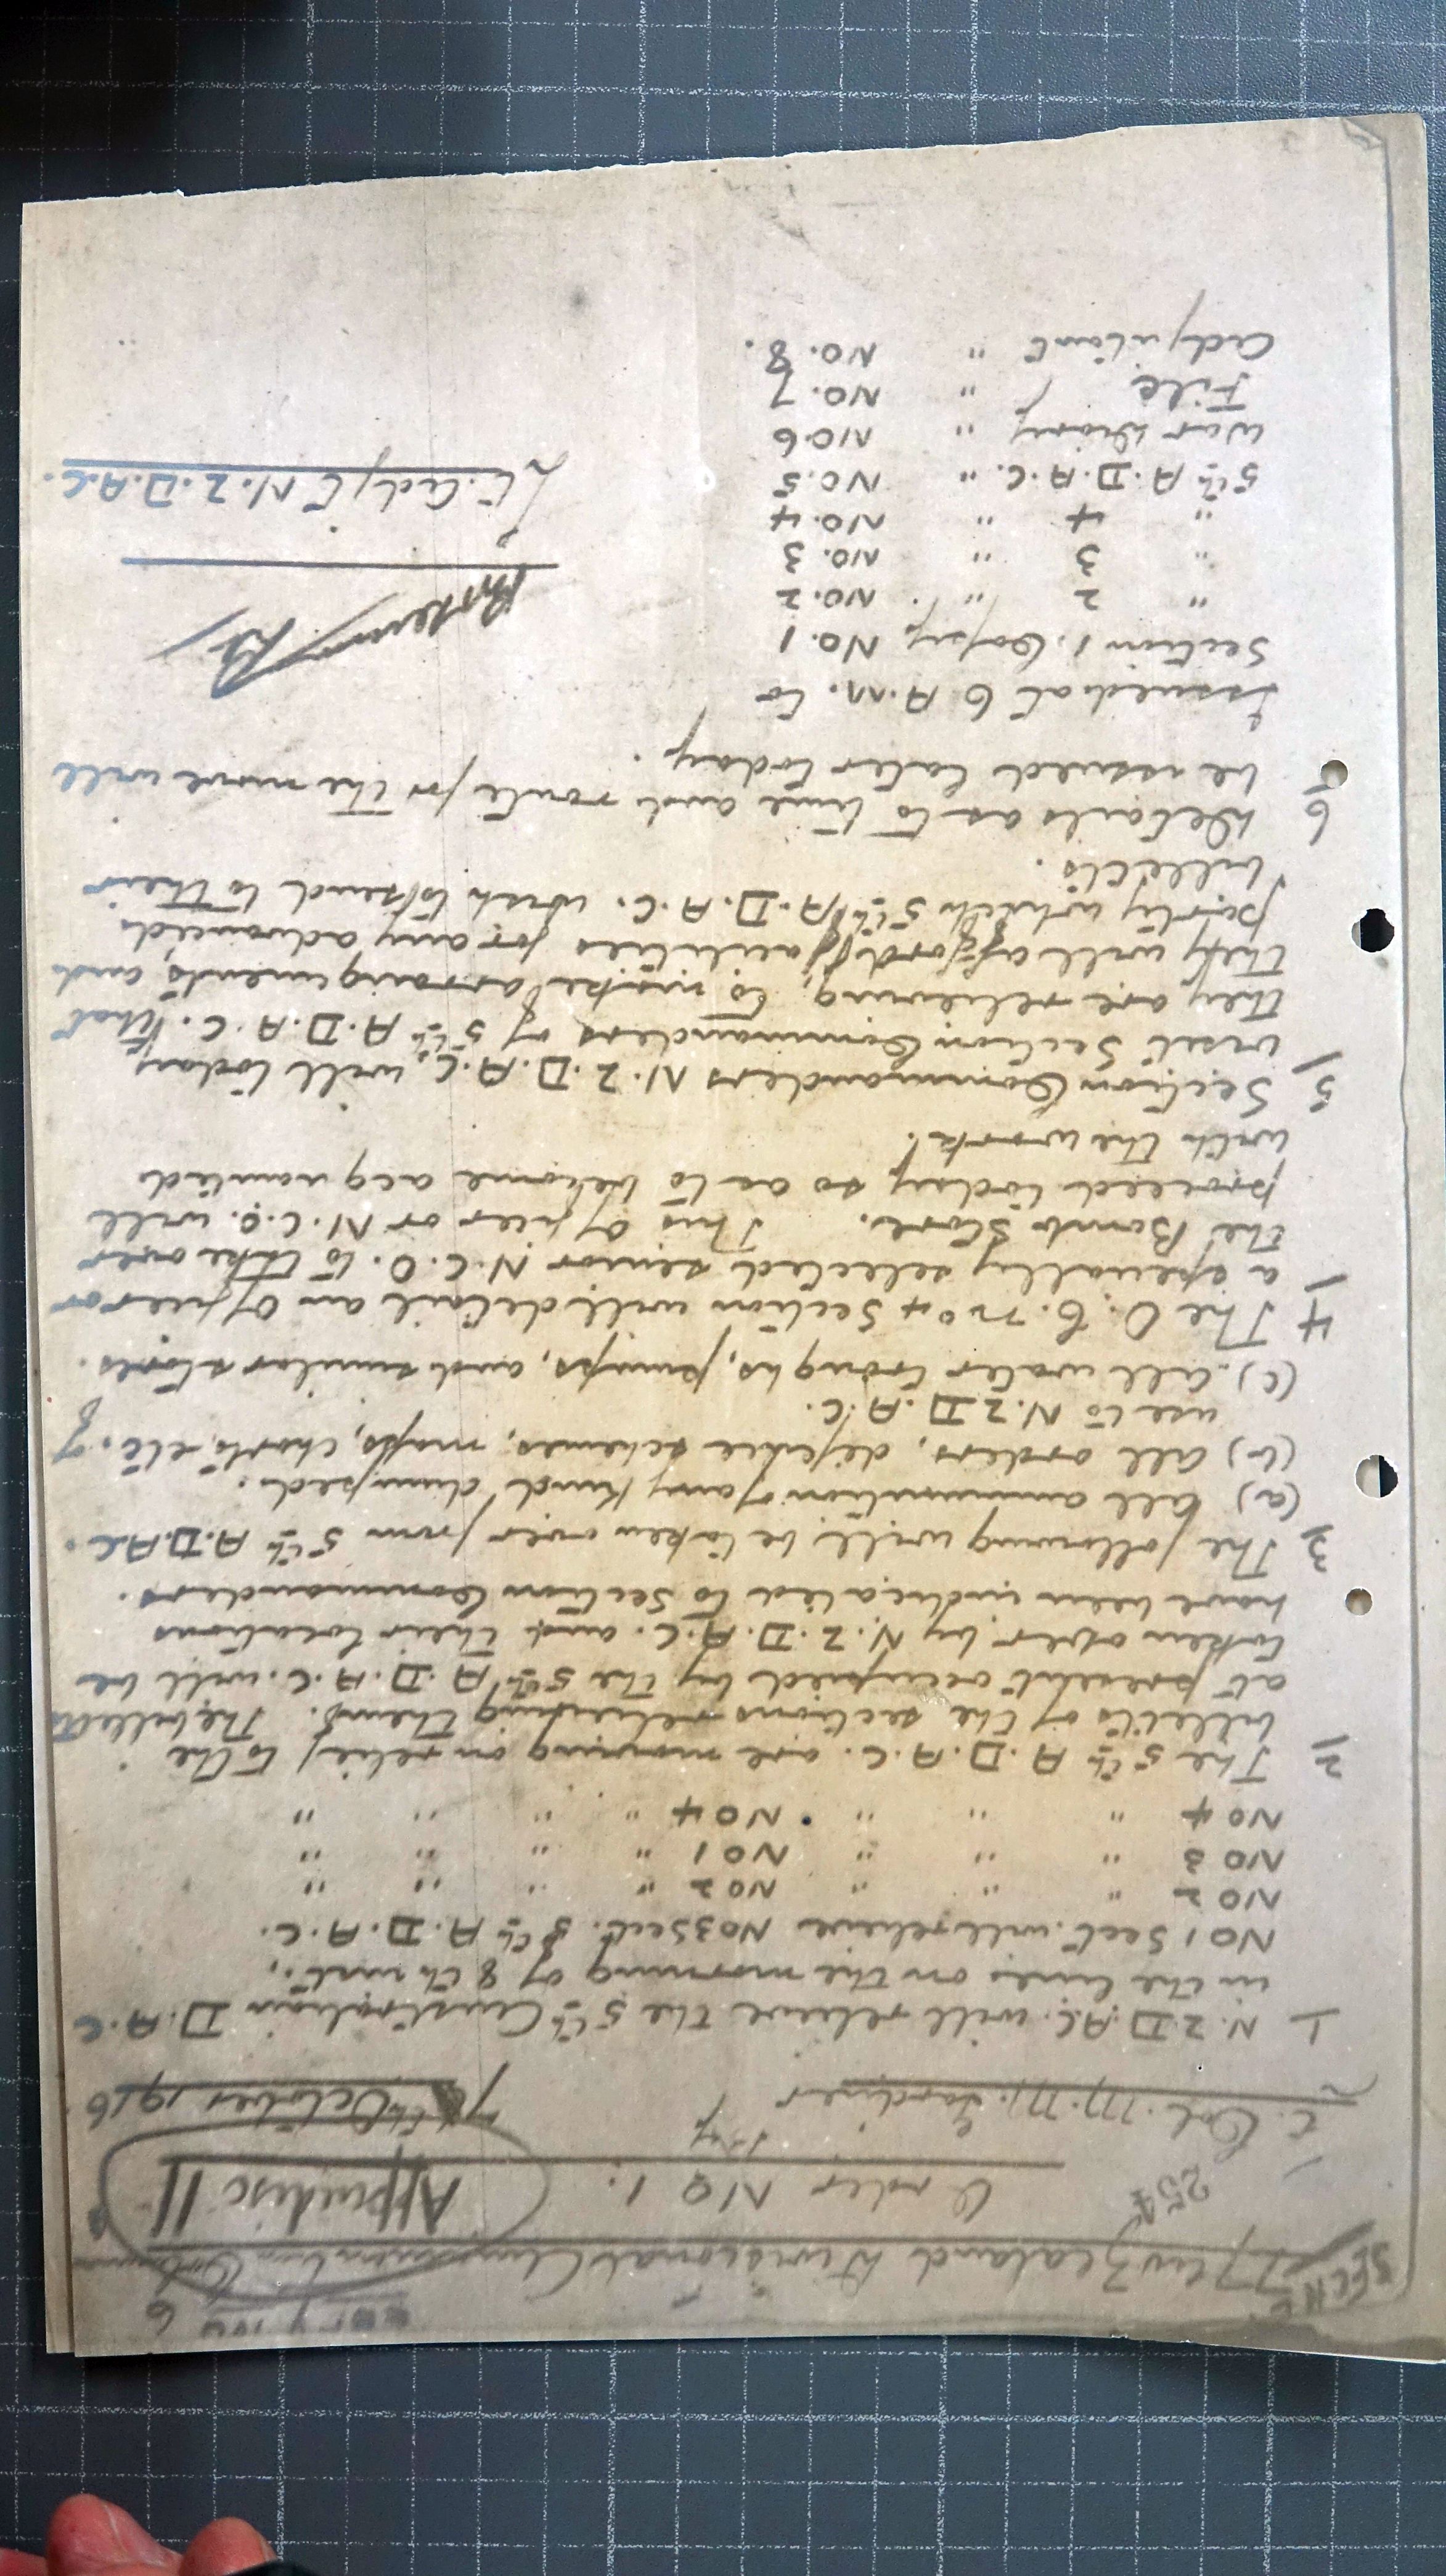 Copy No 6
SECRET
New Zealand Divisional Ammunition Column
Order No 1.
Appendix II
254
Lt. Col. M. M. Gardner
7th October 1916
1 N.Z.D.A.C. will relieve the 5th Australian D.A.C
in the lines on the morning of 8th inst.,
No 1 Sect. will relieve No 3 Sect. 5th A.D.A.C.
No 2 " " " No 2 " " " "
No 3 " " " No 1 " " " "
No 4 " " " No 4 " " " "
2/ The 5th A.D.A.C. are moving on relief to the
billets of the sections relieving them. The billets
at present occupied by the 5th A.D.A.C. will be
taken over by N.Z.D.A.C. and their locations
have been indicated to Section Commanders.
3/ The following will be taken over from 5th A.D.A.C.
(a) All ammunition of any kind dumped.
(b) All orders, defence schemes, maps, charts, etc. of
use to N.Z.D.A.C.
(c). All water troughs, pumps, and similar stores.
4/ The O.C. No 4 Section will detail an Officer or
a specially selected senior N.C.O. to take over
the Bomb Store. This Officer or N.C.O. will
proceed today so as to become acquainted
with the work.
5/ Section Commanders N.Z.D.A.C. will today
visit Section Commanders of 5th A.D.A.C. that
they are relieving, to make arrangements, and
they will afford facilities for any advanced
party which 5th A.D.A.C. wish to send to their
billets.
6 Details as to time and route for the move will
be issued later today.
Issued at 6 A.M. to
Section 1. Copy No. 1
" 2 " No. 2
" 3 " No. 3
" 4 " No. 4
5th A.D.A.C. " No. 5
War Diary " No. 6
File " No. 7
Adjutant " No. 8.
Lt. Adjt N.Z.D.A.C.